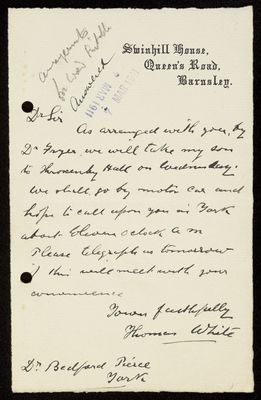 Swinhill House,
Queen's Road,
Barnsley.
arrangements
for
Answered
7 MAR 1911
Dr Sir
As arranged with you by
Dr we will take my son
to Thrownby Hall on Wednesday.
We shall go by motor car and
hope to call upon you in York
about Eleven o clock a m
Please telegraph us tomorrow
if this will meet with your
convenience
Yours faithfully
Thomas White
Dr. Bedford Pierce
York